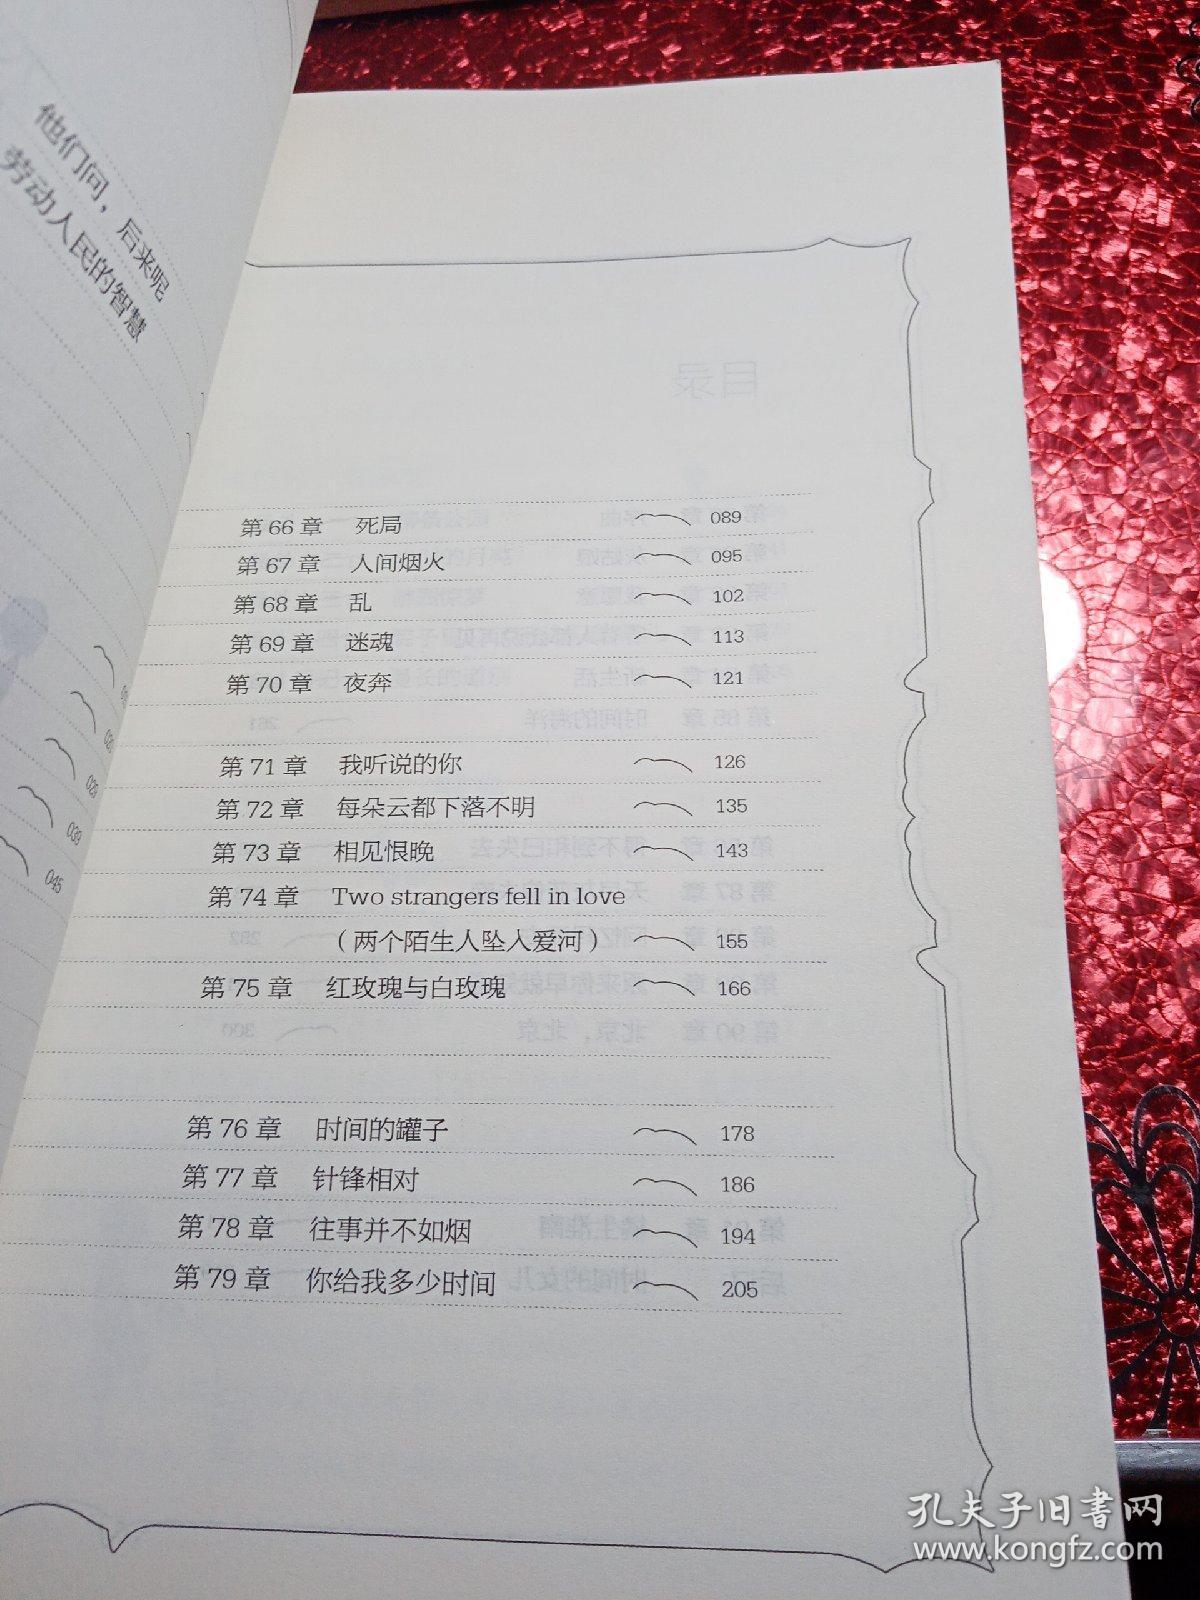 他们问，后来呢
劳动人民的智慧
039
045
第 66 章 死局 089
第 67 章 人间烟火 095
第 68 章 乱 102
第 69 章 迷魂 113
第 70 章 夜奔 121
第 71 章 我听说的你 126
第 72 章 每朵云都下落不明 135
第 73 章 相见恨晚 143
第 74 章 Two strangers fell in love
（两个陌生人坠入爱河） 155
第 75 章 红玫瑰与白玫瑰 166
第 76 章 时间的罐子 178
第 77 章 针锋相对 186
第 78 章 往事并不如烟 194
第 79 章 你给我多少时间 205
孔夫子旧書网
www.kongfz.com